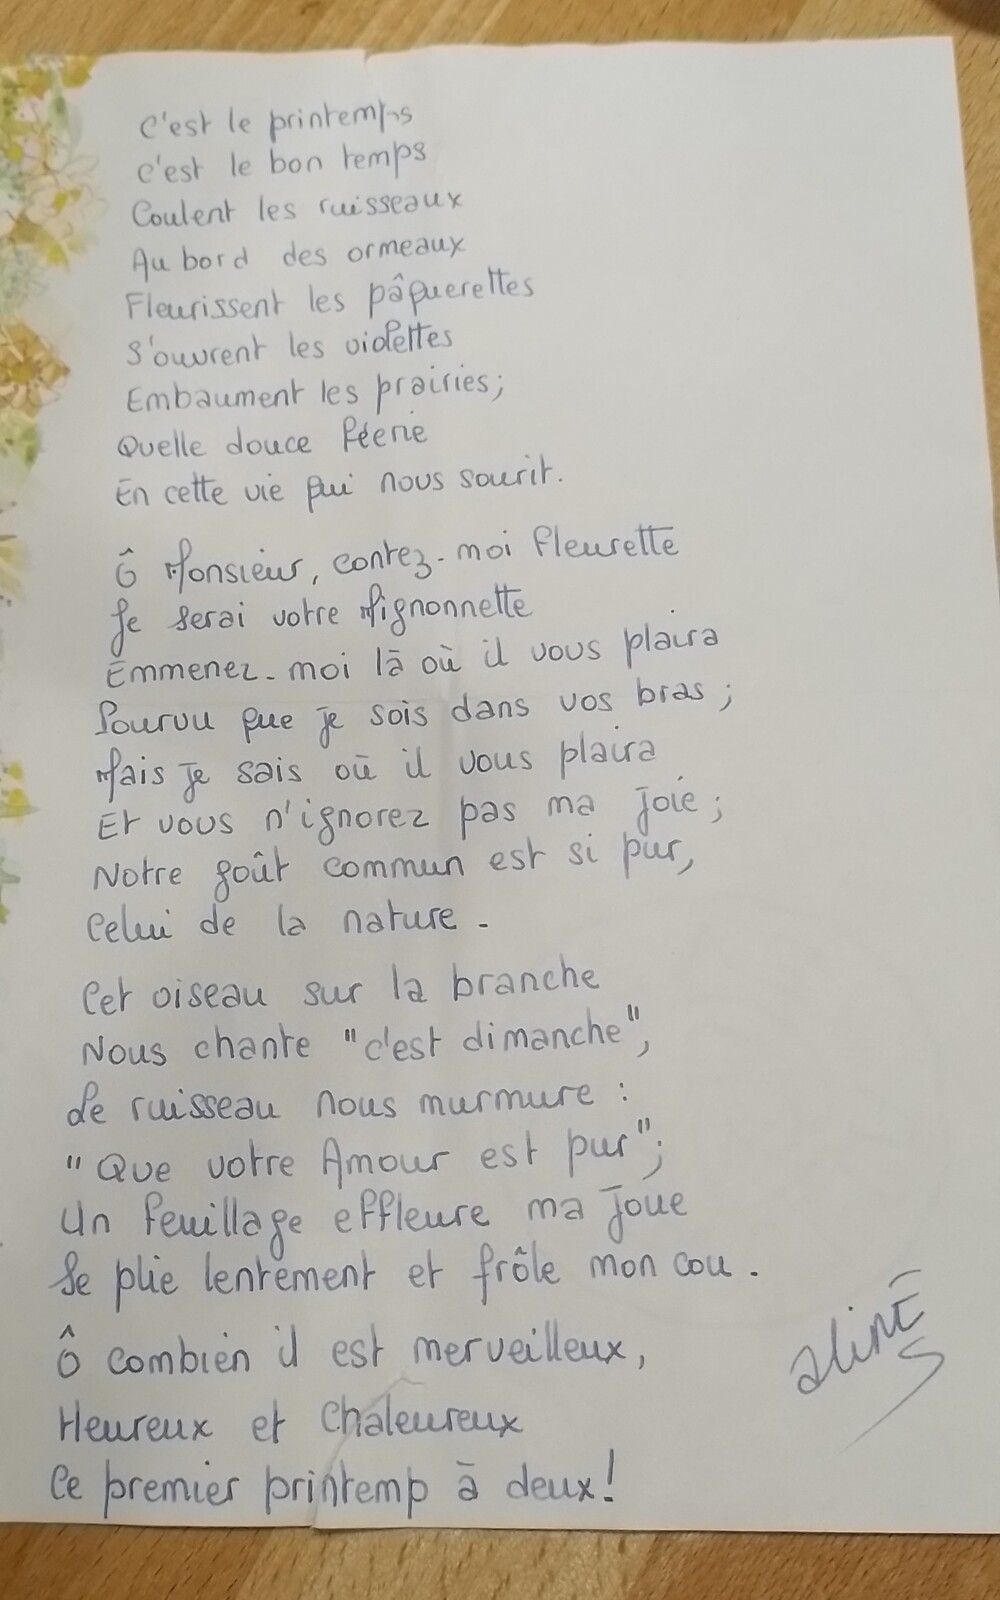 C'est le printemps
C'est le bon temps
Coulent les ruisseaux
Au bord des ormeaux
Fleurissent les pâquerettes
S'ouvrent les violettes
Embaument les prairies;
Quelle douce féerie
En cette vie qui nous sourit.
Ô Monsieur, contez-moi fleurette
Je serai votre Mignonnette
Emmenez-moi là où il vous plaira
Pourvu que je sois dans vos bras;
Mais je sais où il vous plaira
Et vous n'ignorez pas ma joie;
Notre goût commun est si pur,
Celui de la nature.
Cet oiseau sur la branche
Nous chante "c'est dimanche",
Le ruisseau nous murmure :
"Que votre Amour est pur";
Un feuillage effleure ma joue
Se plie lentement et frôle mon cou.
Ô combien il est merveilleux,
Heureux et Chaleureux
Ce premier printemp à deux!
Aline